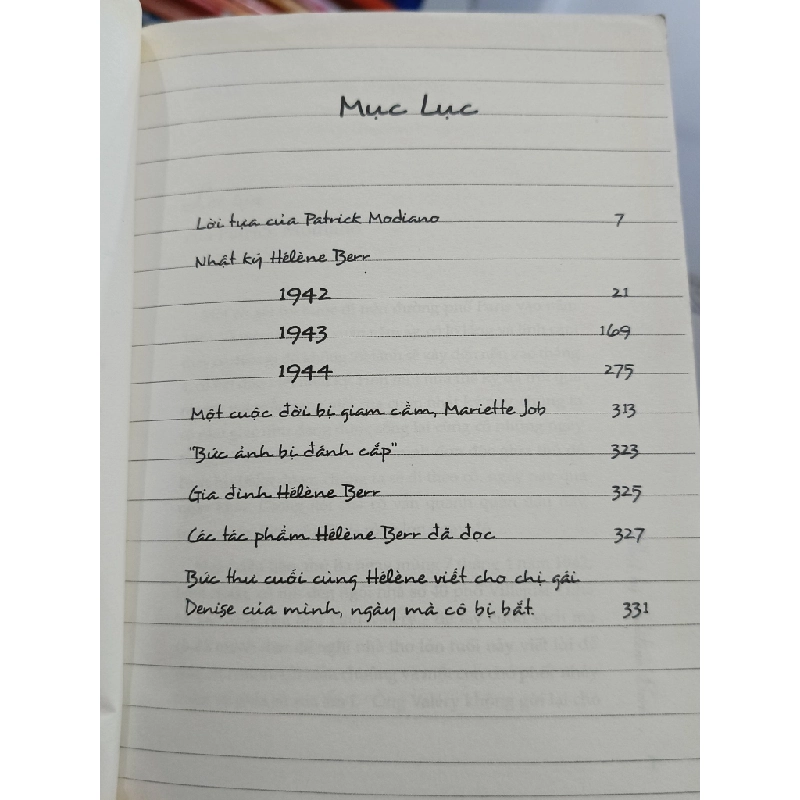 Mục Lục
Lời tựa của Patrick Modiano 7
Nhật ký Hélène Berr
1942 21
1943 169
1944 275
Một cuộc đời bị giam cầm, Mariette Job 313
"Bức ảnh bị đánh cắp" 323
Gia đình Hélène Berr 325
Các tác phẩm Hélène Berr đã đọc 327
Bức thư cuối cùng Hélène viết cho chị gái
Denise của mình, ngày mà cô bị bắt. 331